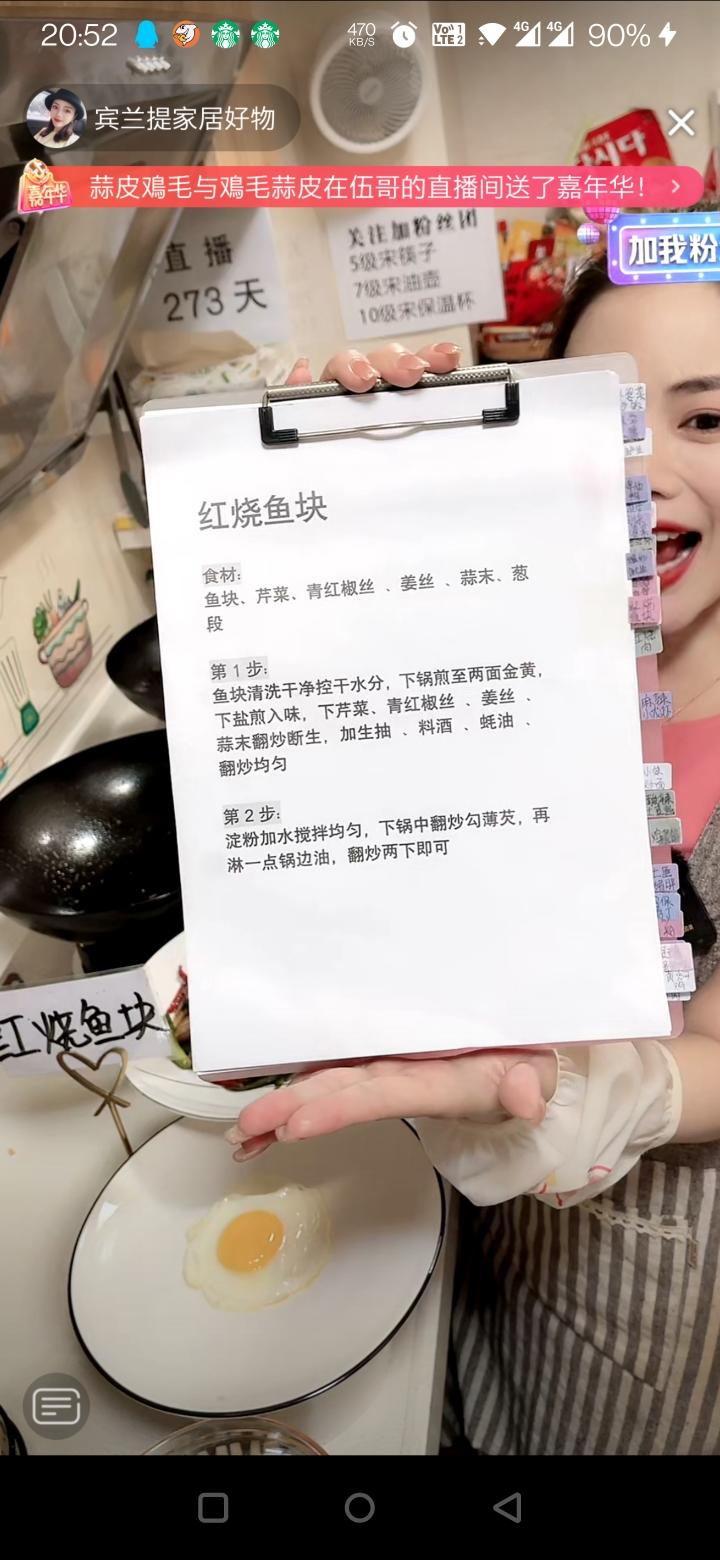 20:52
470
KB/S
Vo 1
LTE 2
4G
4G
90%
宾兰提家居好物
嘉年华
蒜皮鳮毛与鳮毛蒜皮在伍哥的直播间送了嘉年华！
加我粉
直播
273天
关注加粉丝团
5级宋筷子
7级宋油壶
10级宋保温杯
红烧鱼块
食材:
鱼块、芹菜、青红椒丝 、姜丝 、蒜末、葱
段
第 1 步:
鱼块清洗干净控干水分，下锅煎至两面金黄，
下盐煎入味，下芹菜、青红椒丝 、姜丝 、
蒜末翻炒断生，加生抽 、料酒 、蚝油 、
翻炒均匀
第 2 步:
淀粉加水搅拌均匀，下锅中翻炒勾薄芡，再
淋一点锅边油，翻炒两下即可
红烧鱼块